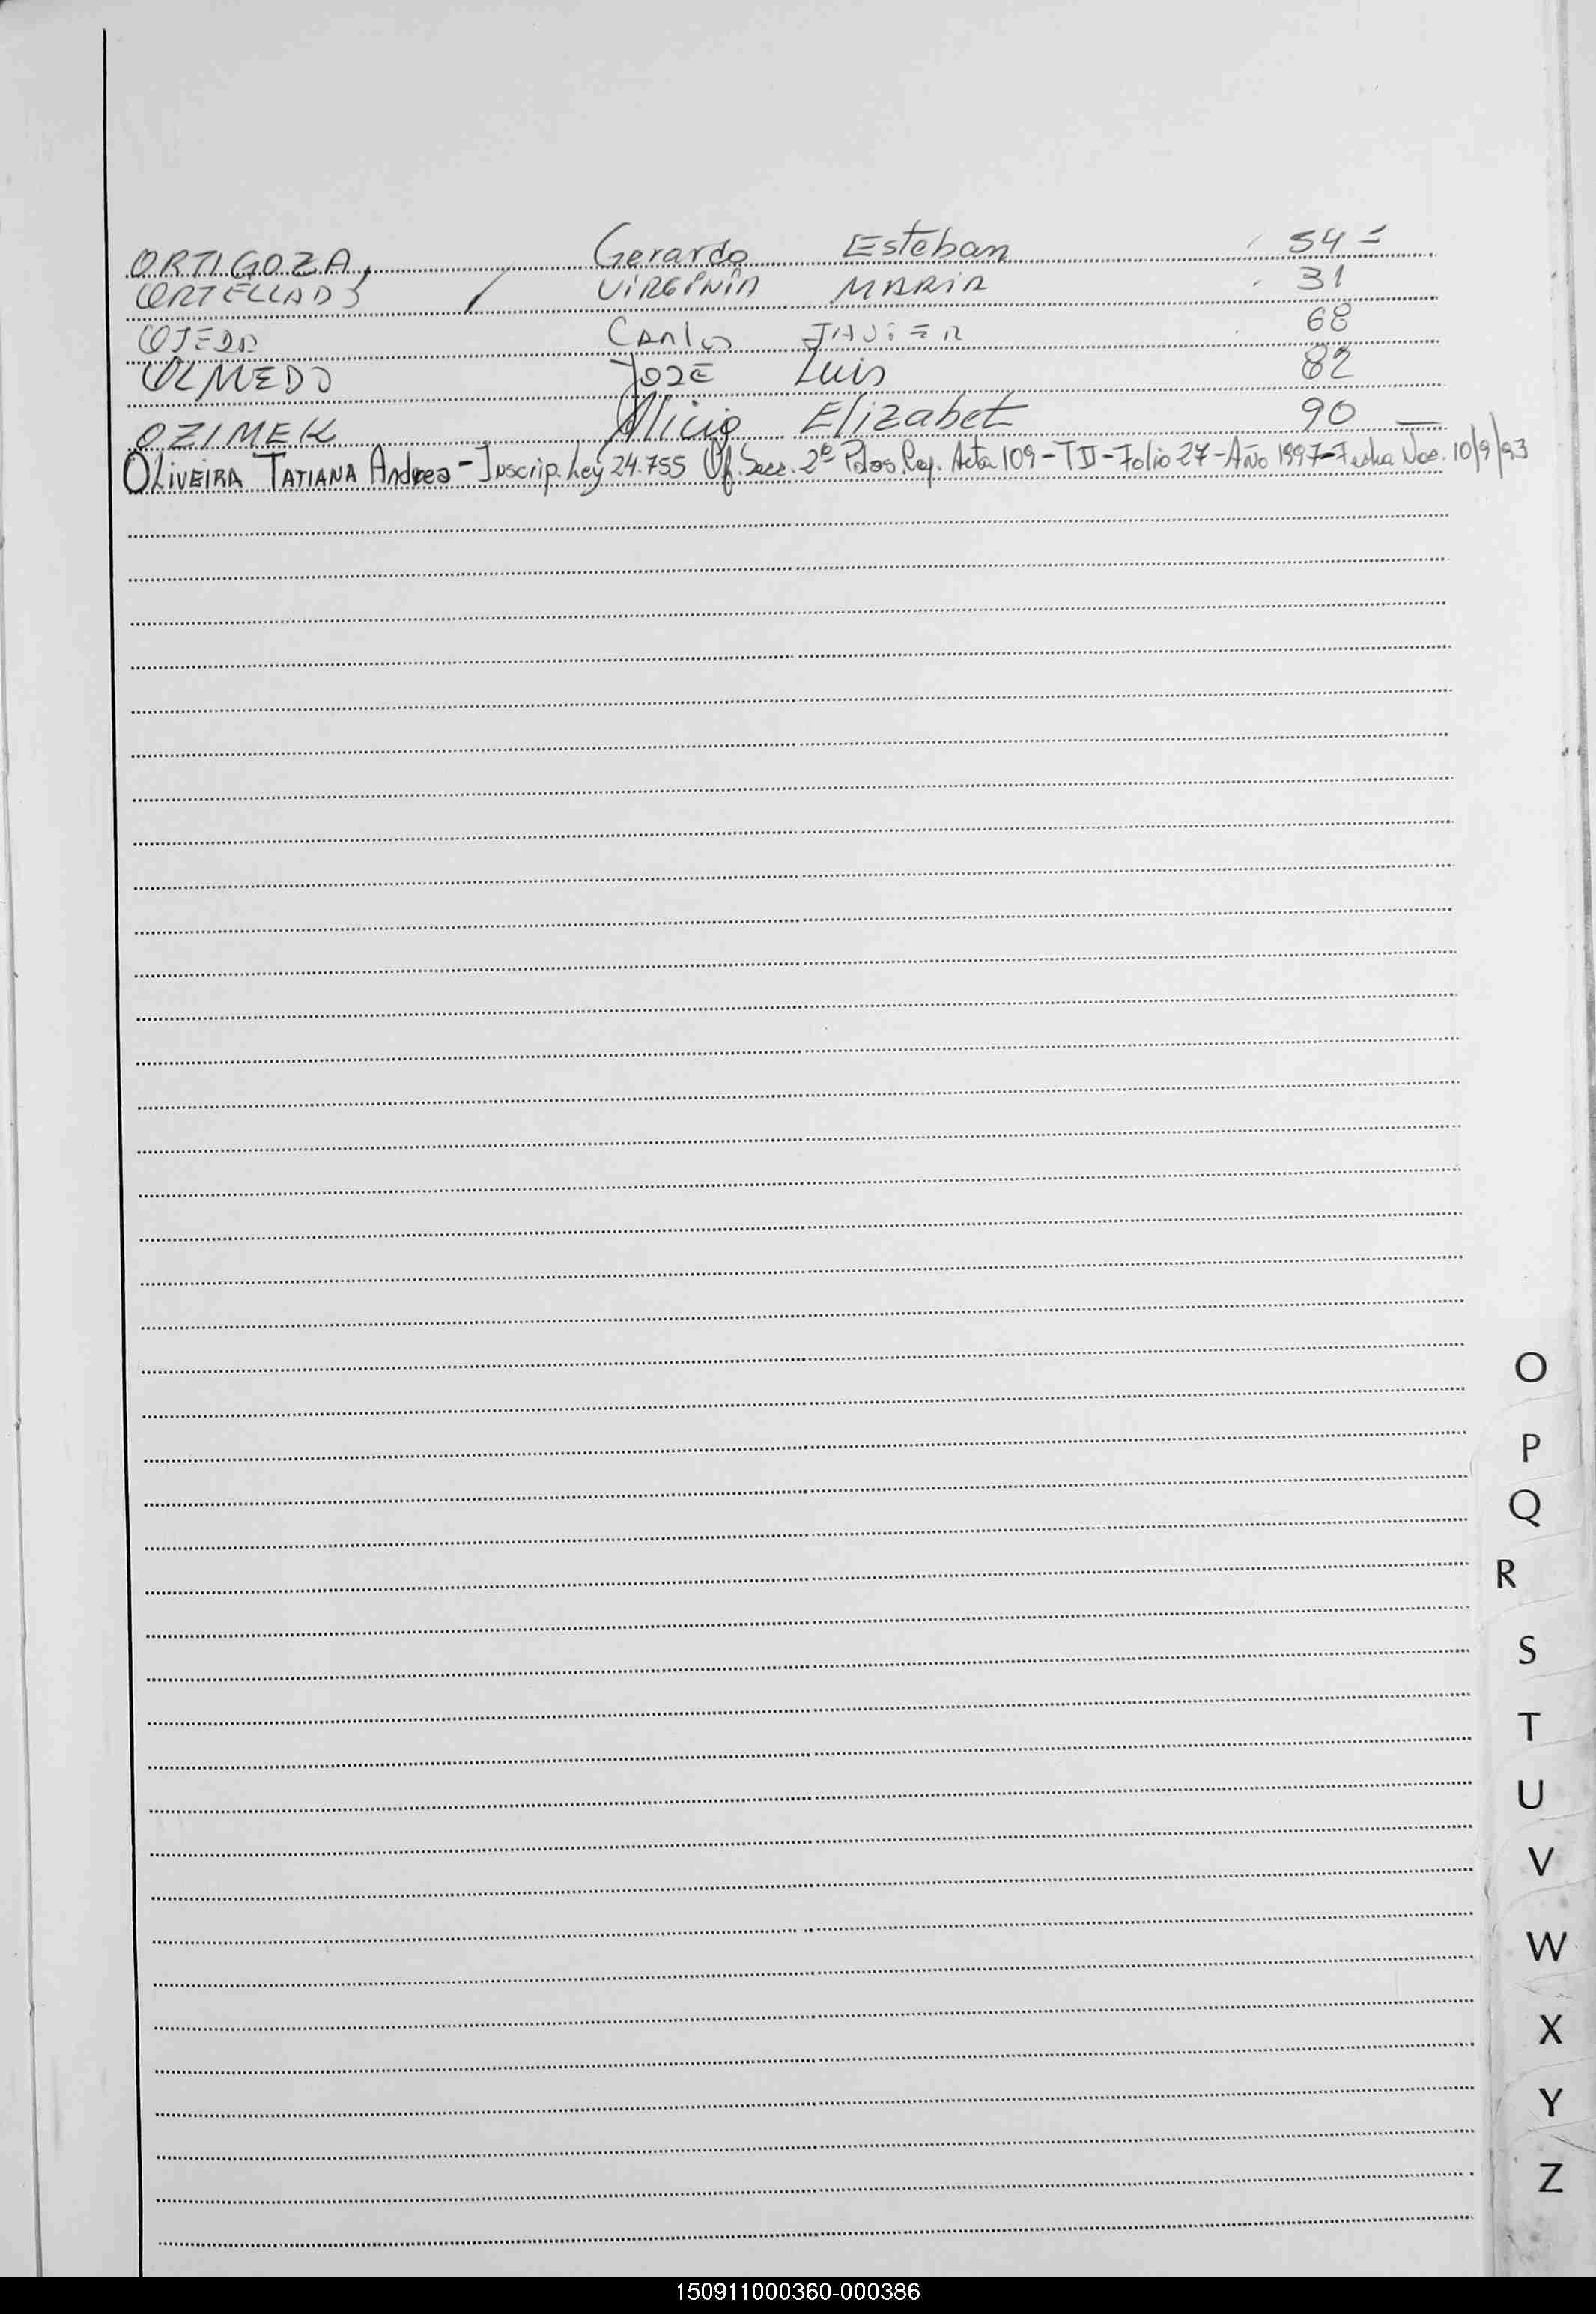 ORTIGOZA, Gerardo Esteban 54=
ORTELLADO / VIRGINIA MARIA 31
OJEDA Carlos JAVIER 68
OLMEDO JOSE Luis 82
OZIMEK Alicia Elizabet 90 —
OLIVEIRA TATIANA Andrea - Inscrip. Ley 24.755 Of. Secc. 2ª Pdas. Acta 109 - TII - Folio 27 - Año 1997 - Fecha Nac. 10/9/93
O
P
Q
R
S
T
U
V
W
X
Y
Z
150911000360-000386